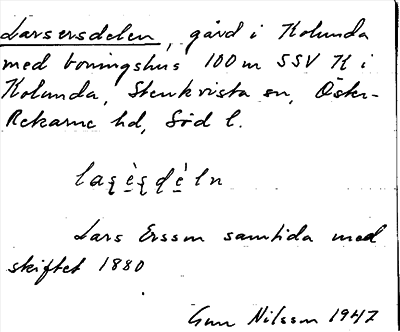 Larsersdelen, gård i Kolunda
med boningshus 100 m SSV K i
Kolunda, Stenkvista sn, Öster-
Rekarne hd, Söd l.
Lars Ersson samtida med
skiftet 1880
Gun Nilsson 1947